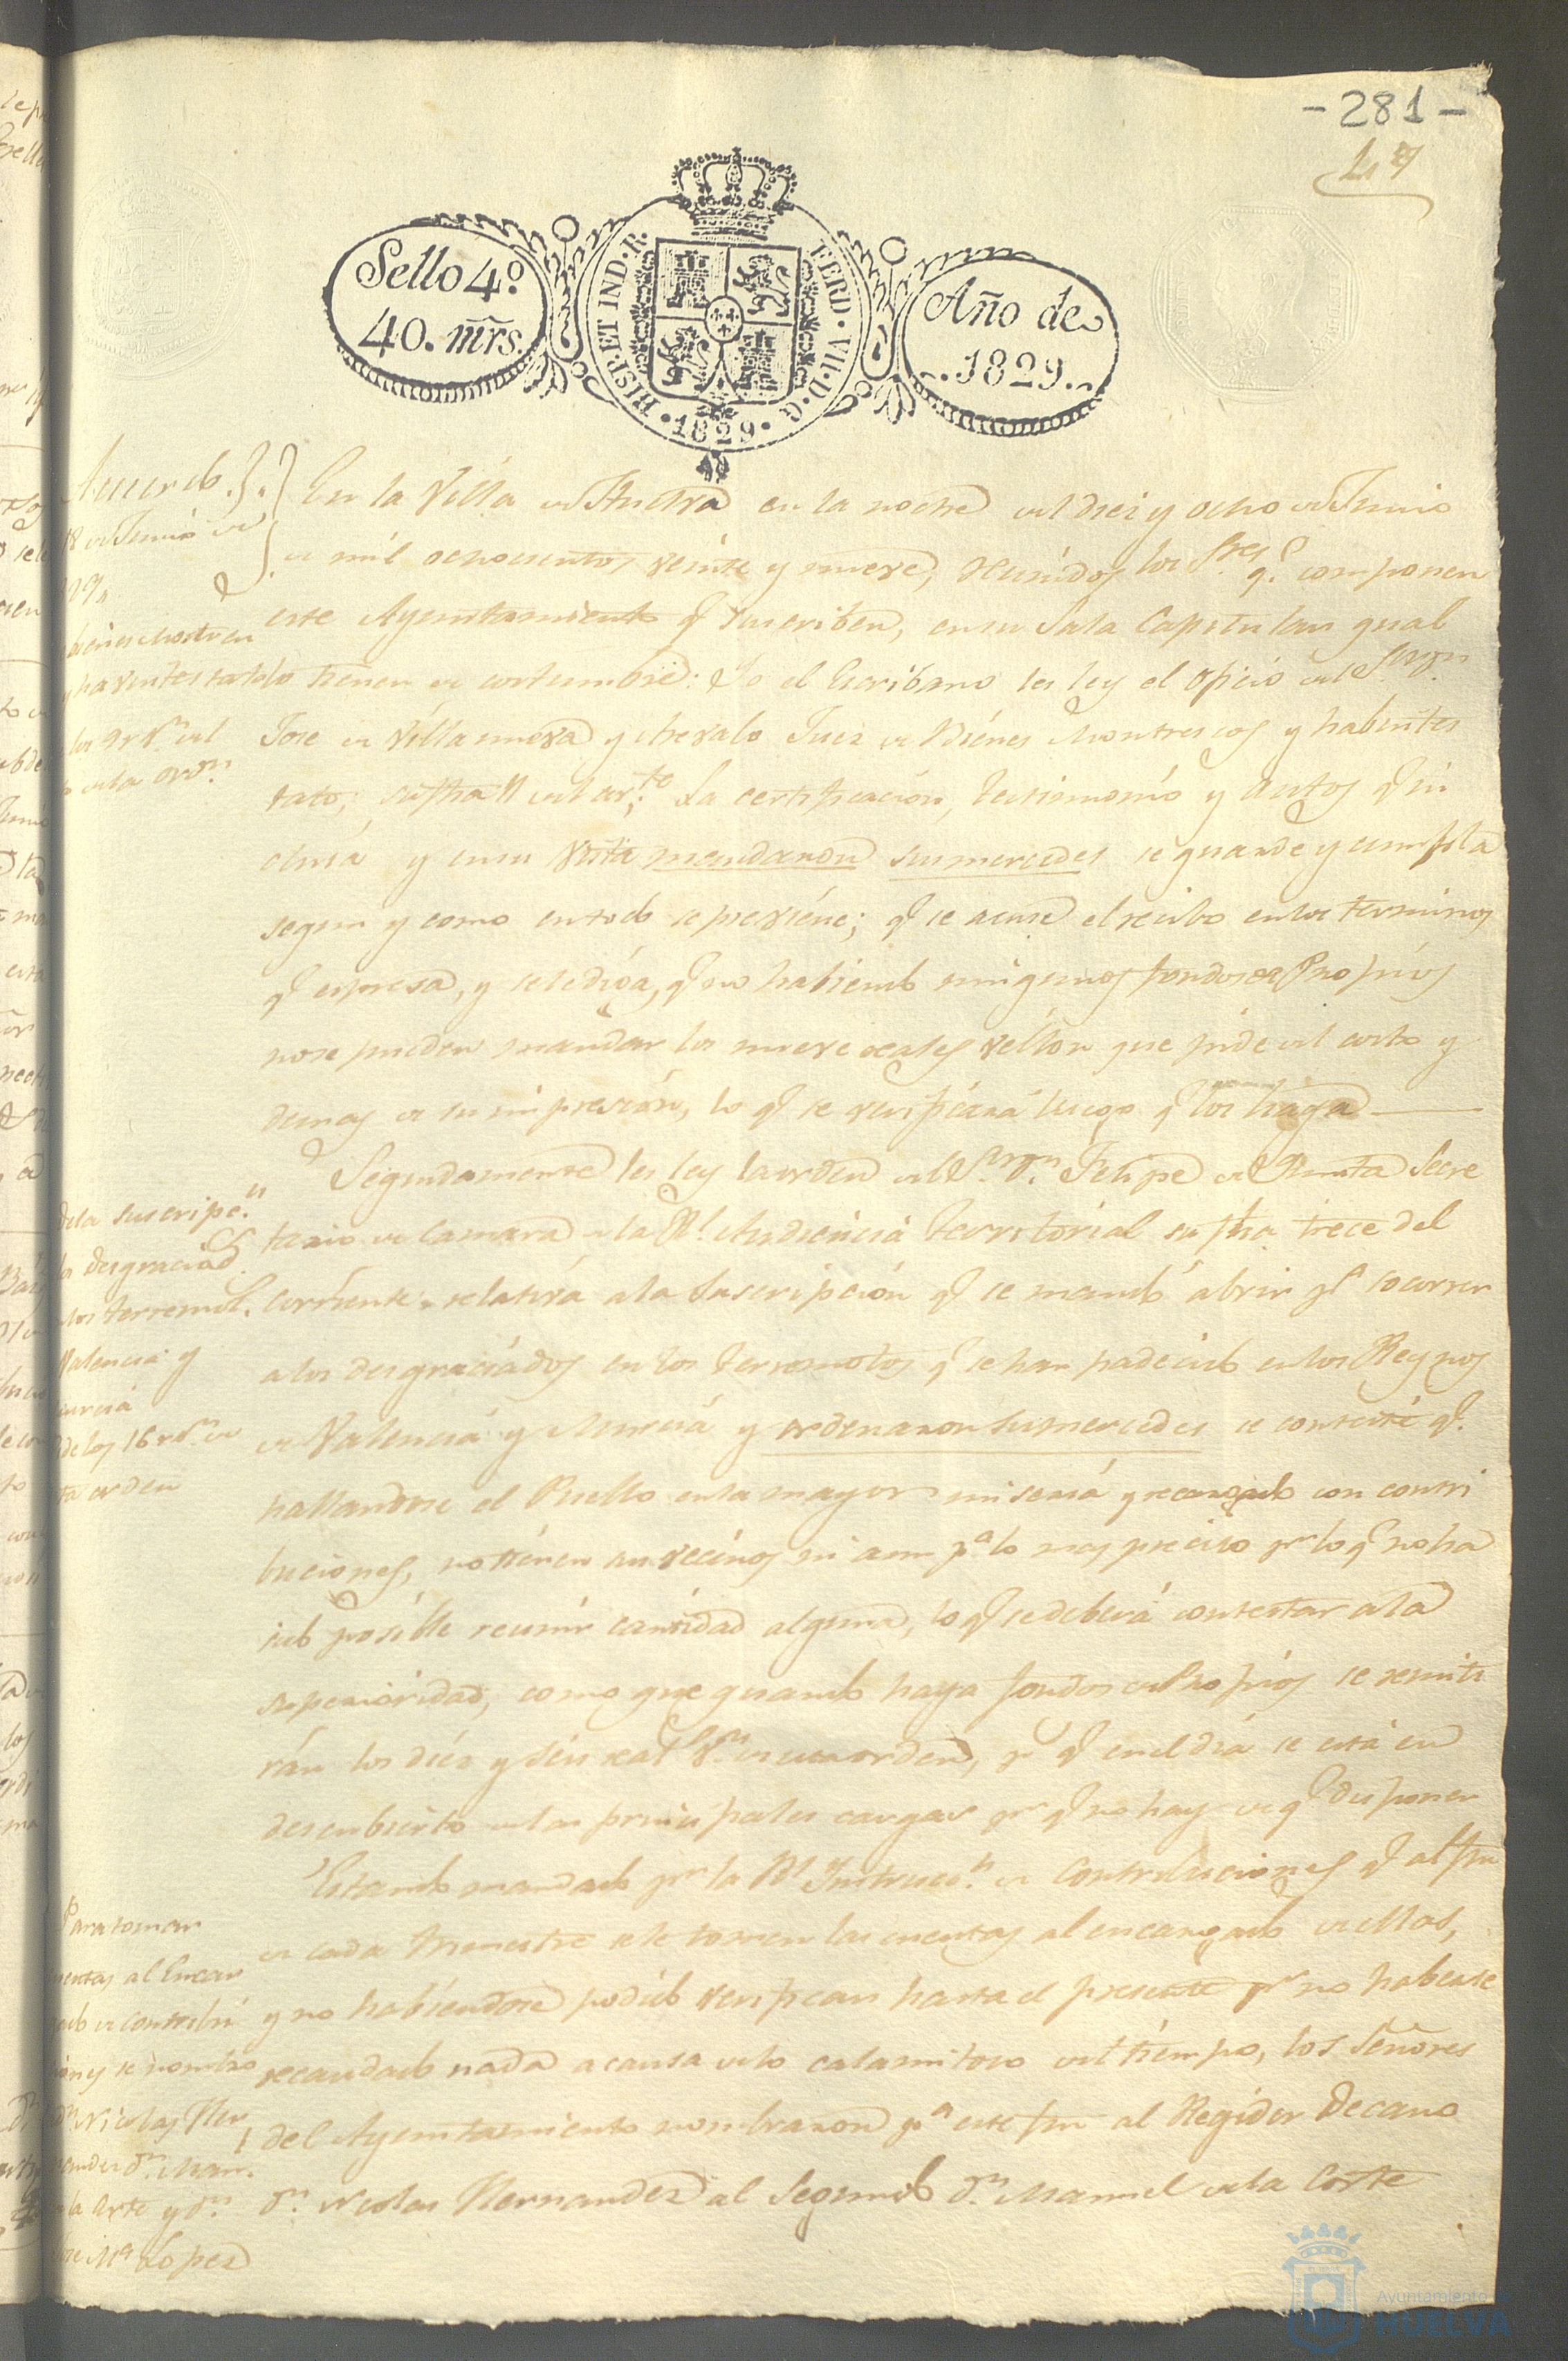 - 281 -
47
Sello 4º
40. mrs.
HISP. ET IND. R.
FERD. VII. D. G.
1829
Año de
1829.
Acuerdo
18 de Junio de
En la Villa de Huelva en la noche del diez y ocho de Junio
de mil ochocientos veinte y nueve, reunidos los Sres. q.e componen
este Ayuntamiento q.e suscriben, en su Sala Capitular qual
lo tienen de costumbre: Yo el Escribano les ley el oficio del Sr. Dn.
Jose de Villanueva y Arevalo Juez de Bienes Mostrencos y habintes
tato, su fha 11 del cor.te La certificacion, testimonio y Autos q.e in
cluia y en su vista mandaron sus mercedes se guarde y cumpla
segun y como en todo se previene; q.e se acuse el recibo en los terminos
q.e espresa, y se le diga, q.e no habiendo ningunos fondos de Propios
no se pueden mandar los nueve reales vellon que pide del costo y
demas de su impresion, lo q.e se verificará luego q.e los haya
Segundamente les ley la orden del Sr. Dn. Felipe de Secre
tario de Camara de la Rl. Audiencia Territorial su fha trece del
corriente relativa a la Suscripcion q.e se mandó abrir pª socorrer
a los desgraciados en los Terremotos q.e se han padecido en los Reynos
de Valencia y Murcia y ordenaron sus mercedes se conteste q.e
hallandose el Pueblo en la mayor miseria y recargado con contri
buciones, no tienen sus vecinos ni aun pª lo mas preciso pr lo q.e no ha
sido posible reunir cantidad alguna, lo q.e se deberá contestar a la
superioridad, como que quando haya fondos de Propios se remiti
rán los diez y seis real.s Vn. de esta orden, pr q.e en el dia se está en
descubierto de las principales cargas pr q.e no hay de q.e disponer
Estando mandado pr la Rl. Instrucc.n de Contribuciones q.e al fin
de cada trimestre se le tomen las cuentas al encargado de ellas,
y no habiendose podido verificar hasta el presente pr no haberse
recaudado nada a causa de lo calamitoso del tiempo, los Señores
del Ayuntamiento nombraron pª este fin al Regidor Decano
Dn. Nicolas Hernandez al Segundo Dn. Manuel de la Corte
bienes Mostren
y havintes tato
los 9 r Vn del
de la orn.
de la suscripc.n
a desgraciad.s
los terremot.
Valencia y
Murcia
de los 16 r Vn de
ta orden
Para tomar
uentas al Encar
gado de contribu
ion y se nombro
Dn Nicolas Her
nandez Dn. Man.l
la Corte y Dn.
Jose Mª Lopez
Ayuntamiento
HUELVA